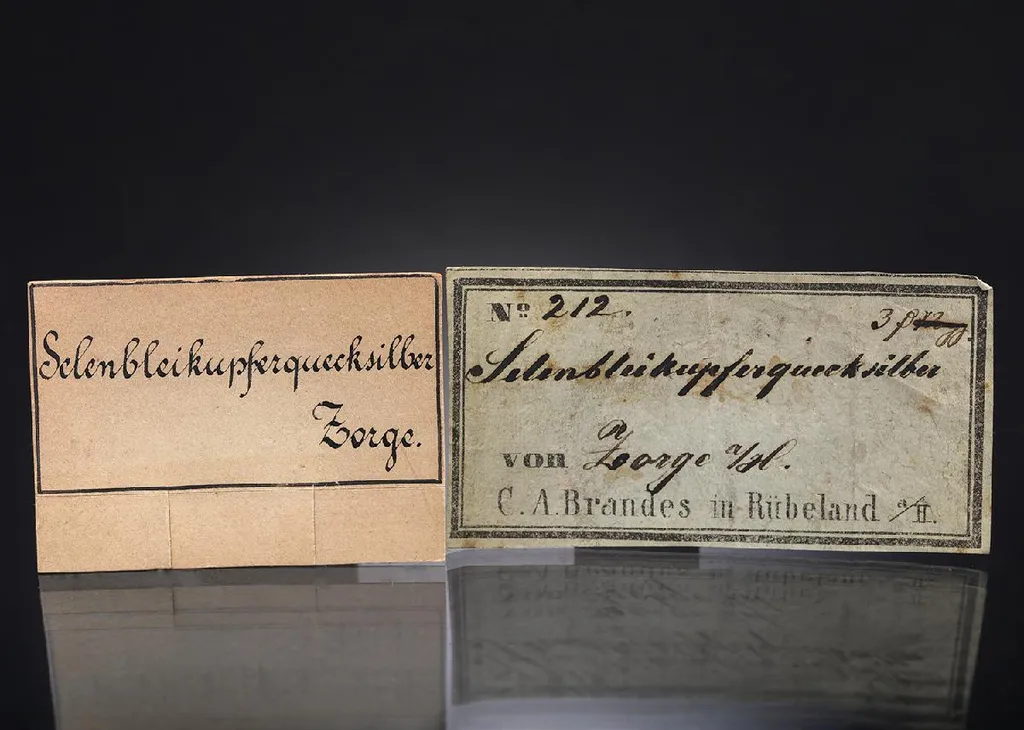 Selenbleikupferquecksilber
Zorge.
No 212.
3
Selenbleikupferquecksilber
von Zorge a/H.
C. A. Brandes in Rübeland a/H.